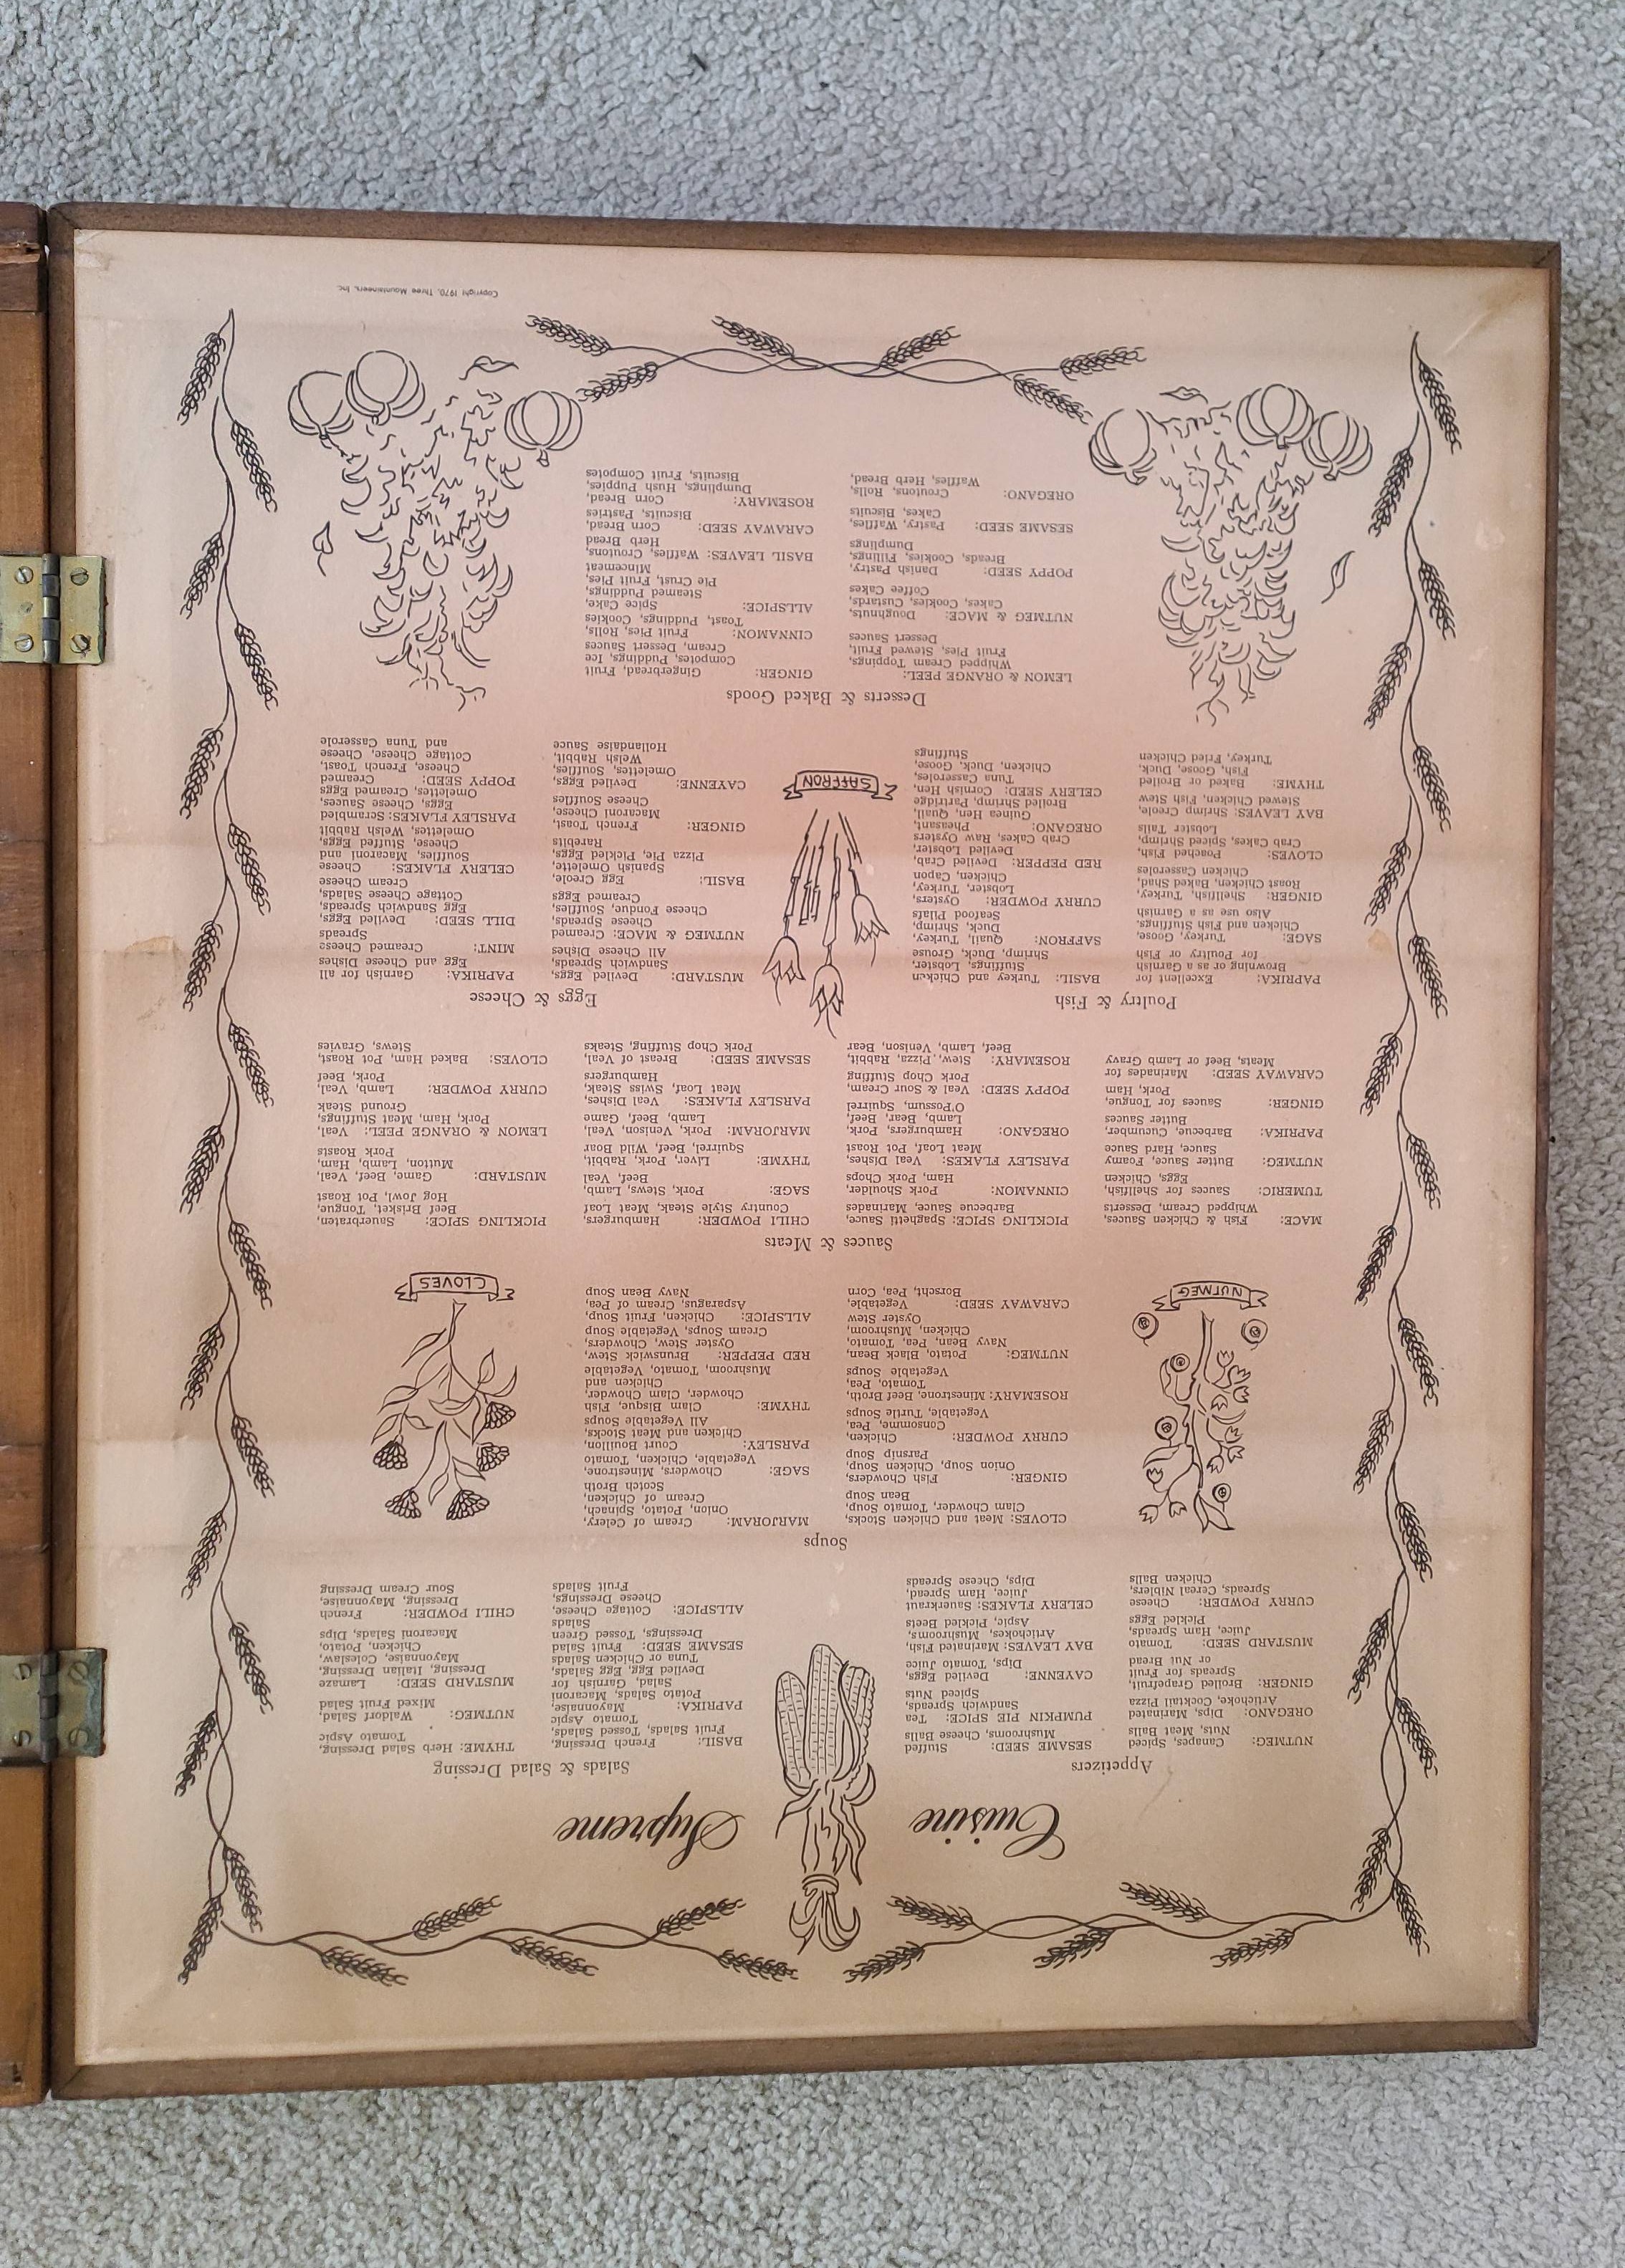 Cuisine Supreme
Appetizers
NUTMEG: Canapes, Spiced
Nuts, Meat Balls
OREGANO: Dips, Marinated
Artichoke, Cocktail Pizza
GINGER: Broiled Grapefruit,
Spreads for Fruit
or Nut Bread
MUSTARD SEED: Tomato
Juice, Ham Spreads,
Pickled Eggs
CURRY POWDER: Cheese
Spreads, Cereal Niblers,
Chicken Balls
SESAME SEED: Stuffed
Mushrooms, Cheese Balls
PUMPKIN PIE SPICE: Tea
Sandwich Spreads,
Spiced Nuts
CAYENNE: Deviled Eggs,
Dips, Tomato Juice
BAY LEAVES: Marinated Fish,
Artichokes, Mushrooms,
Aspic, Pickled Beets
CELERY FLAKES: Sauerkraut
Juice, Ham Spread,
Dips, Cheese Spreads
Salads & Salad Dressing
BASIL: French Dressing,
Fruit Salads, Tossed Salads,
Tomato Aspic
PAPRIKA: Mayonnaise,
Potato Salads, Macaroni
Salad, Garnish for
Deviled Egg, Egg Salads,
Tuna or Chicken Salads
SESAME SEED: Fruit Salad
Dressings, Tossed Green
Salads
ALLSPICE: Cottage Cheese,
Cheese Dressings,
Fruit Salads
THYME: Herb Salad Dressing,
Tomato Aspic
NUTMEG: Waldorf Salad,
Mixed Fruit Salad
MUSTARD SEED: Lamaze
Dressing, Italian Dressing,
Mayonnaise, Coleslaw,
Chicken, Potato,
Macaroni Salads, Dips
CHILI POWDER: French
Dressing, Mayonnaise,
Sour Cream Dressing
Soups
CLOVES: Meat and Chicken Stocks,
Clam Chowder, Tomato Soup,
Bean Soup
GINGER: Fish Chowders,
Onion Soup, Chicken Soup,
Parsnip Soup
CURRY POWDER: Chicken,
Consomme, Pea,
Vegetable, Turtle Soups
ROSEMARY: Minestrone, Beef Broth,
Tomato, Pea,
Vegetable Soups
NUTMEG: Potato, Black Bean,
Navy Bean, Pea, Tomato,
Chicken, Mushroom,
Oyster Stew
CARAWAY SEED: Vegetable,
Borscht, Pea, Corn
MARJORAM: Cream of Celery,
Onion, Potato, Spinach,
Cream of Chicken,
Scotch Broth
SAGE: Chowders, Minestrone,
Vegetable, Chicken, Tomato
PARSLEY: Court Bouillon,
Chicken and Meat Stocks,
All Vegetable Soups
THYME: Clam Bisque, Fish
Chowder, Clam Chowder,
Chicken and
Mushroom, Tomato, Vegetable
RED PEPPER: Brunswick Stew,
Oyster Stew, Chowders,
Cream Soups, Vegetable Soup
ALLSPICE: Chicken, Fruit Soup,
Asparagus, Cream of Pea,
Navy Bean Soup
NUTMEG
CLOVES
Sauces & Meats
MACE: Fish & Chicken Sauces,
Whipped Cream, Desserts
TUMERIC: Sauces for Shellfish,
Eggs, Chicken
NUTMEG: Butter Sauce, Foamy
Sauce, Hard Sauce
PAPRIKA: Barbecue, Cucumber,
Butter Sauces
GINGER: Sauces for Tongue,
Pork, Ham
CARAWAY SEED: Marinades for
Meats, Beef or Lamb Gravy
PICKLING SPICE: Spaghetti Sauce,
Barbecue Sauce, Marinades
CINNAMON: Pork Shoulder,
Ham, Pork Chops
PARSLEY FLAKES: Veal Dishes,
Meat Loaf, Pot Roast
OREGANO: Hamburgers, Pork,
Lamb, Bear, Beef,
O'Possum, Squirrel
POPPY SEED: Veal & Sour Cream,
Pork Chop Stuffing
ROSEMARY: Stew, Pizza, Rabbit,
Beef, Lamb, Venison, Bear
CHILI POWDER: Hamburgers,
Country Style Steak, Meat Loaf
SAGE: Pork, Stews, Lamb,
Beef, Veal
THYME: Liver, Pork, Rabbit,
Squirrel, Beef, Wild Boar
MARJORAM: Pork, Venison, Veal,
Lamb, Beef, Game
PARSLEY FLAKES: Veal Dishes,
Meat Loaf, Swiss Steak,
Hamburgers
SESAME SEED: Breast of Veal,
Pork Chop Stuffing, Steaks
PICKLING SPICE: Sauerbraten,
Beef Brisket, Tongue,
Hog Jowl, Pot Roast
MUSTARD: Game, Beef, Veal,
Mutton, Lamb, Ham,
Pork Roasts
LEMON & ORANGE PEEL: Veal,
Pork, Ham, Meat Stuffings,
Ground Steak
CURRY POWDER: Lamb, Veal,
Pork, Beef
CLOVES: Baked Ham, Pot Roast,
Stews, Gravies
Poultry & Fish
PAPRIKA: Excellent for
Browning or as a Garnish
for Poultry or Fish
SAGE: Turkey, Goose,
Chicken and Fish Stuffings,
Also use as a Garnish
GINGER: Shellfish, Turkey,
Roast Chicken, Baked Shad,
Chicken Casseroles
CLOVES: Poached Fish,
Crab Cakes, Spiced Shrimp,
Lobster Tails
BAY LEAVES: Shrimp Creole,
Stewed Chicken, Fish Stew
THYME: Baked or Broiled
Fish, Goose, Duck,
Turkey, Fried Chicken
BASIL: Turkey and Chicken
Stuffings, Lobster,
Shrimp, Duck, Grouse
SAFFRON: Quail, Turkey,
Duck, Shrimp,
Seafood Pilafs
CURRY POWDER: Oysters,
Lobster, Turkey,
Chicken, Capon
RED PEPPER: Deviled Crab,
Deviled Lobster,
Crab Cakes, Raw Oysters
OREGANO: Pheasant,
Guinea Hen, Quail,
Broiled Shrimp, Partridge
CELERY SEED: Cornish Hen,
Tuna Casseroles,
Chicken, Duck, Goose,
Stuffings
SAFFRON
Eggs & Cheese
MUSTARD: Deviled Eggs,
Sandwich Spreads,
All Cheese Dishes
NUTMEG & MACE: Creamed
Cheese Spreads,
Cheese Fondue, Souffles,
Creamed Eggs
BASIL: Egg Creole,
Spanish Omelette,
Pizza Pie, Pickled Eggs,
Rarebits
GINGER: French Toast,
Macaroni Cheese,
Cheese Souffles
CAYENNE: Deviled Eggs,
Omelettes, Souffles,
Welsh Rabbit,
Hollandaise Sauce
PAPRIKA: Garnish for all
Egg and Cheese Dishes
MINT: Creamed Cheese
Spreads
DILL SEED: Deviled Eggs,
Egg Sandwich Spreads,
Cottage Cheese Salads,
Cream Cheese
CELERY FLAKES: Cheese
Souffles, Macaroni and
Cheese, Stuffed Eggs,
Omelettes, Welsh Rabbit
PARSLEY FLAKES: Scrambled
Eggs, Cheese Sauces,
Omelettes, Creamed Eggs
POPPY SEED: Creamed
Cheese, French Toast,
Cottage Cheese, Cheese
and Tuna Casserole
Desserts & Baked Goods
LEMON & ORANGE PEEL:
Whipped Cream Toppings,
Fruit Pies, Stewed Fruit,
Dessert Sauces
NUTMEG & MACE: Doughnuts,
Cakes, Cookies, Custards,
Coffee Cakes
POPPY SEED: Danish Pastry,
Breads, Cookies, Fillings,
Dumplings
SESAME SEED: Pastry, Waffles,
Cakes, Biscuits
OREGANO: Croutons, Rolls,
Waffles, Herb Bread,
GINGER: Gingerbread, Fruit
Compotes, Puddings, Ice
Cream, Dessert Sauces
CINNAMON: Fruit Pies, Rolls,
Toast, Puddings, Cookies
ALLSPICE: Spice Cake,
Steamed Puddings,
Pie Crust, Fruit Pies,
Mincemeat
BASIL LEAVES: Waffles, Croutons,
Herb Bread
CARAWAY SEED: Corn Bread,
Biscuits, Pastries
ROSEMARY: Corn Bread,
Dumplings, Hush Puppies,
Biscuits, Fruit Compotes
Copyright 1970, Three Mountaineers, Inc.